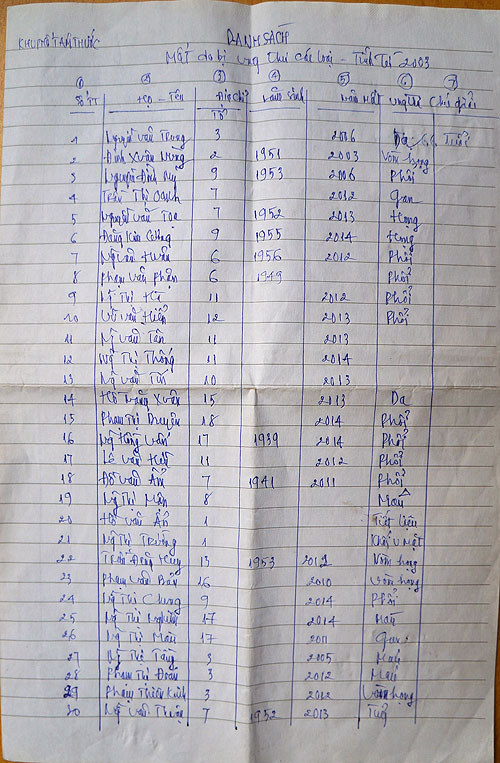 KHU PHỐ TÂM THƯỚC
DANH SÁCH
Mất do bị ung thư các loại - Tính từ 2003
① ② ③ ④ ⑤ ⑥ ⑦
Số TT Họ - Tên Địa chỉ Năm sinh Năm mất ung thư Chú giải
Tổ
1 Nguyễn Văn Trung 3 2006 Da Tuổi
2 Đinh Xuân 2 1951 2003 Vòm họng
3 Nguyễn Đình 9 1953 2006 Phổi
4 Trần Thị Oanh 7 2012 gan
5 Nguyễn Văn Toạ 7 1952 2013 Họng
6 Đặng Kim 9 1955 2014 Họng
7 Ng Văn Huân 6 1956 2012 Phổi
8 Phạm Văn Phận 6 1949 Phổi
9 Ng Thị 11 2012 Phổi
10 Vũ Văn Hiển 12 2013 Phổi
11 Ng Văn Tân 11 2013
12 Ng Thị Thống 11 2014
13 Ng Văn Tín 10 2013
14 Hồ Xuân 15 2013 Da
15 Phạm Thị 18 2014 Phổi
16 Ng Hồng Vân 17 1939 2014 Phổi
17 Lê Văn 11 2012 Phổi
18 Đỗ Văn Ân 7 1941 2011 Phổi
19 Ng Thị Mận 8 Máu
20 Hồ Văn Ân 1 Tiết liệu
21 Ng Thị Trường 1 Khối u Mật
22 Trần Đăng 13 1953 2012 Vòm họng
23 Phạm Văn Bản 16 2010 Vòm họng
24 Ng Thị Chung 9 2014 Phổi
25 Ng Thị 17 2014 Máu
26 Ng Thị Mão 17 2011 Gan
27 Thị Tăng 3 2005 Máu
28 Phạm Thị Đoàn 3 2012 Máu
29 Phạm Thiên Kích 3 2012 Vòm họng
30 Ng Văn 7 1952 2013 Tuỷ